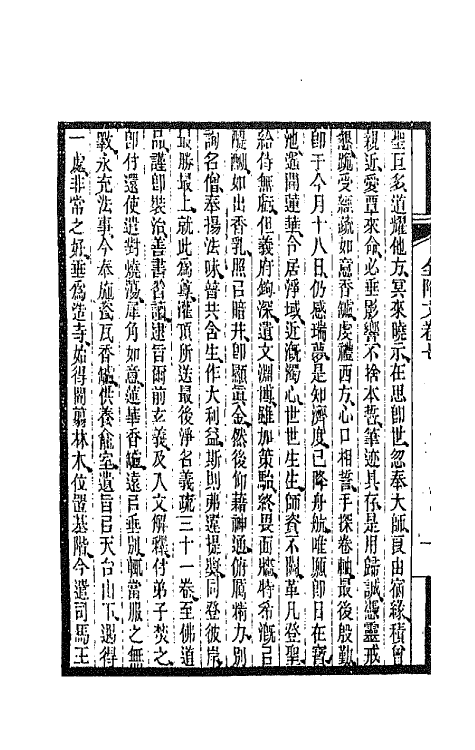 聖旣多道耀他方冥來曉示在思卽世忽奉大師良由宿緣積曾
親近愛覃來命必垂影響不捨本誓筆迹具存是用歸誠憑靈戒
懇跪受經疏如意香爐虔禮西方心口相誓手探卷軸最後殷勤
卽于今月十八日仍感瑞夢是知濟度已降舟航唯願卽日在寶
池遊開蓮華今居淨域近漑濁心世世生生師資不闕革凡登聖
給侍無虧但義府鉤深遺文淵博雖加策駘終畏面牆特希漑以
醍醐如出香乳照以暗井卽顯眞金然後仰藉神通俯厲精力別
詢名僧奉揚法味普共含生作大利益斯則弗違提獎同登彼岸
最勝最上就此爲尊灌頂所送最後淨名義疏三十一卷至佛道
品謹卽裝治善書習讀逮旨爾前玄義及入文解釋付弟子焚之
卽付還使遣對燒蕩犀角如意蓮華香爐遠以垂別輒當服之無
斁永充法事今奉施瓷瓦香爐供養龕室遺旨以天台山下遇得
一處非常之好垂爲造寺始得開剪林木位置基階今遣司馬王
全隋文卷七